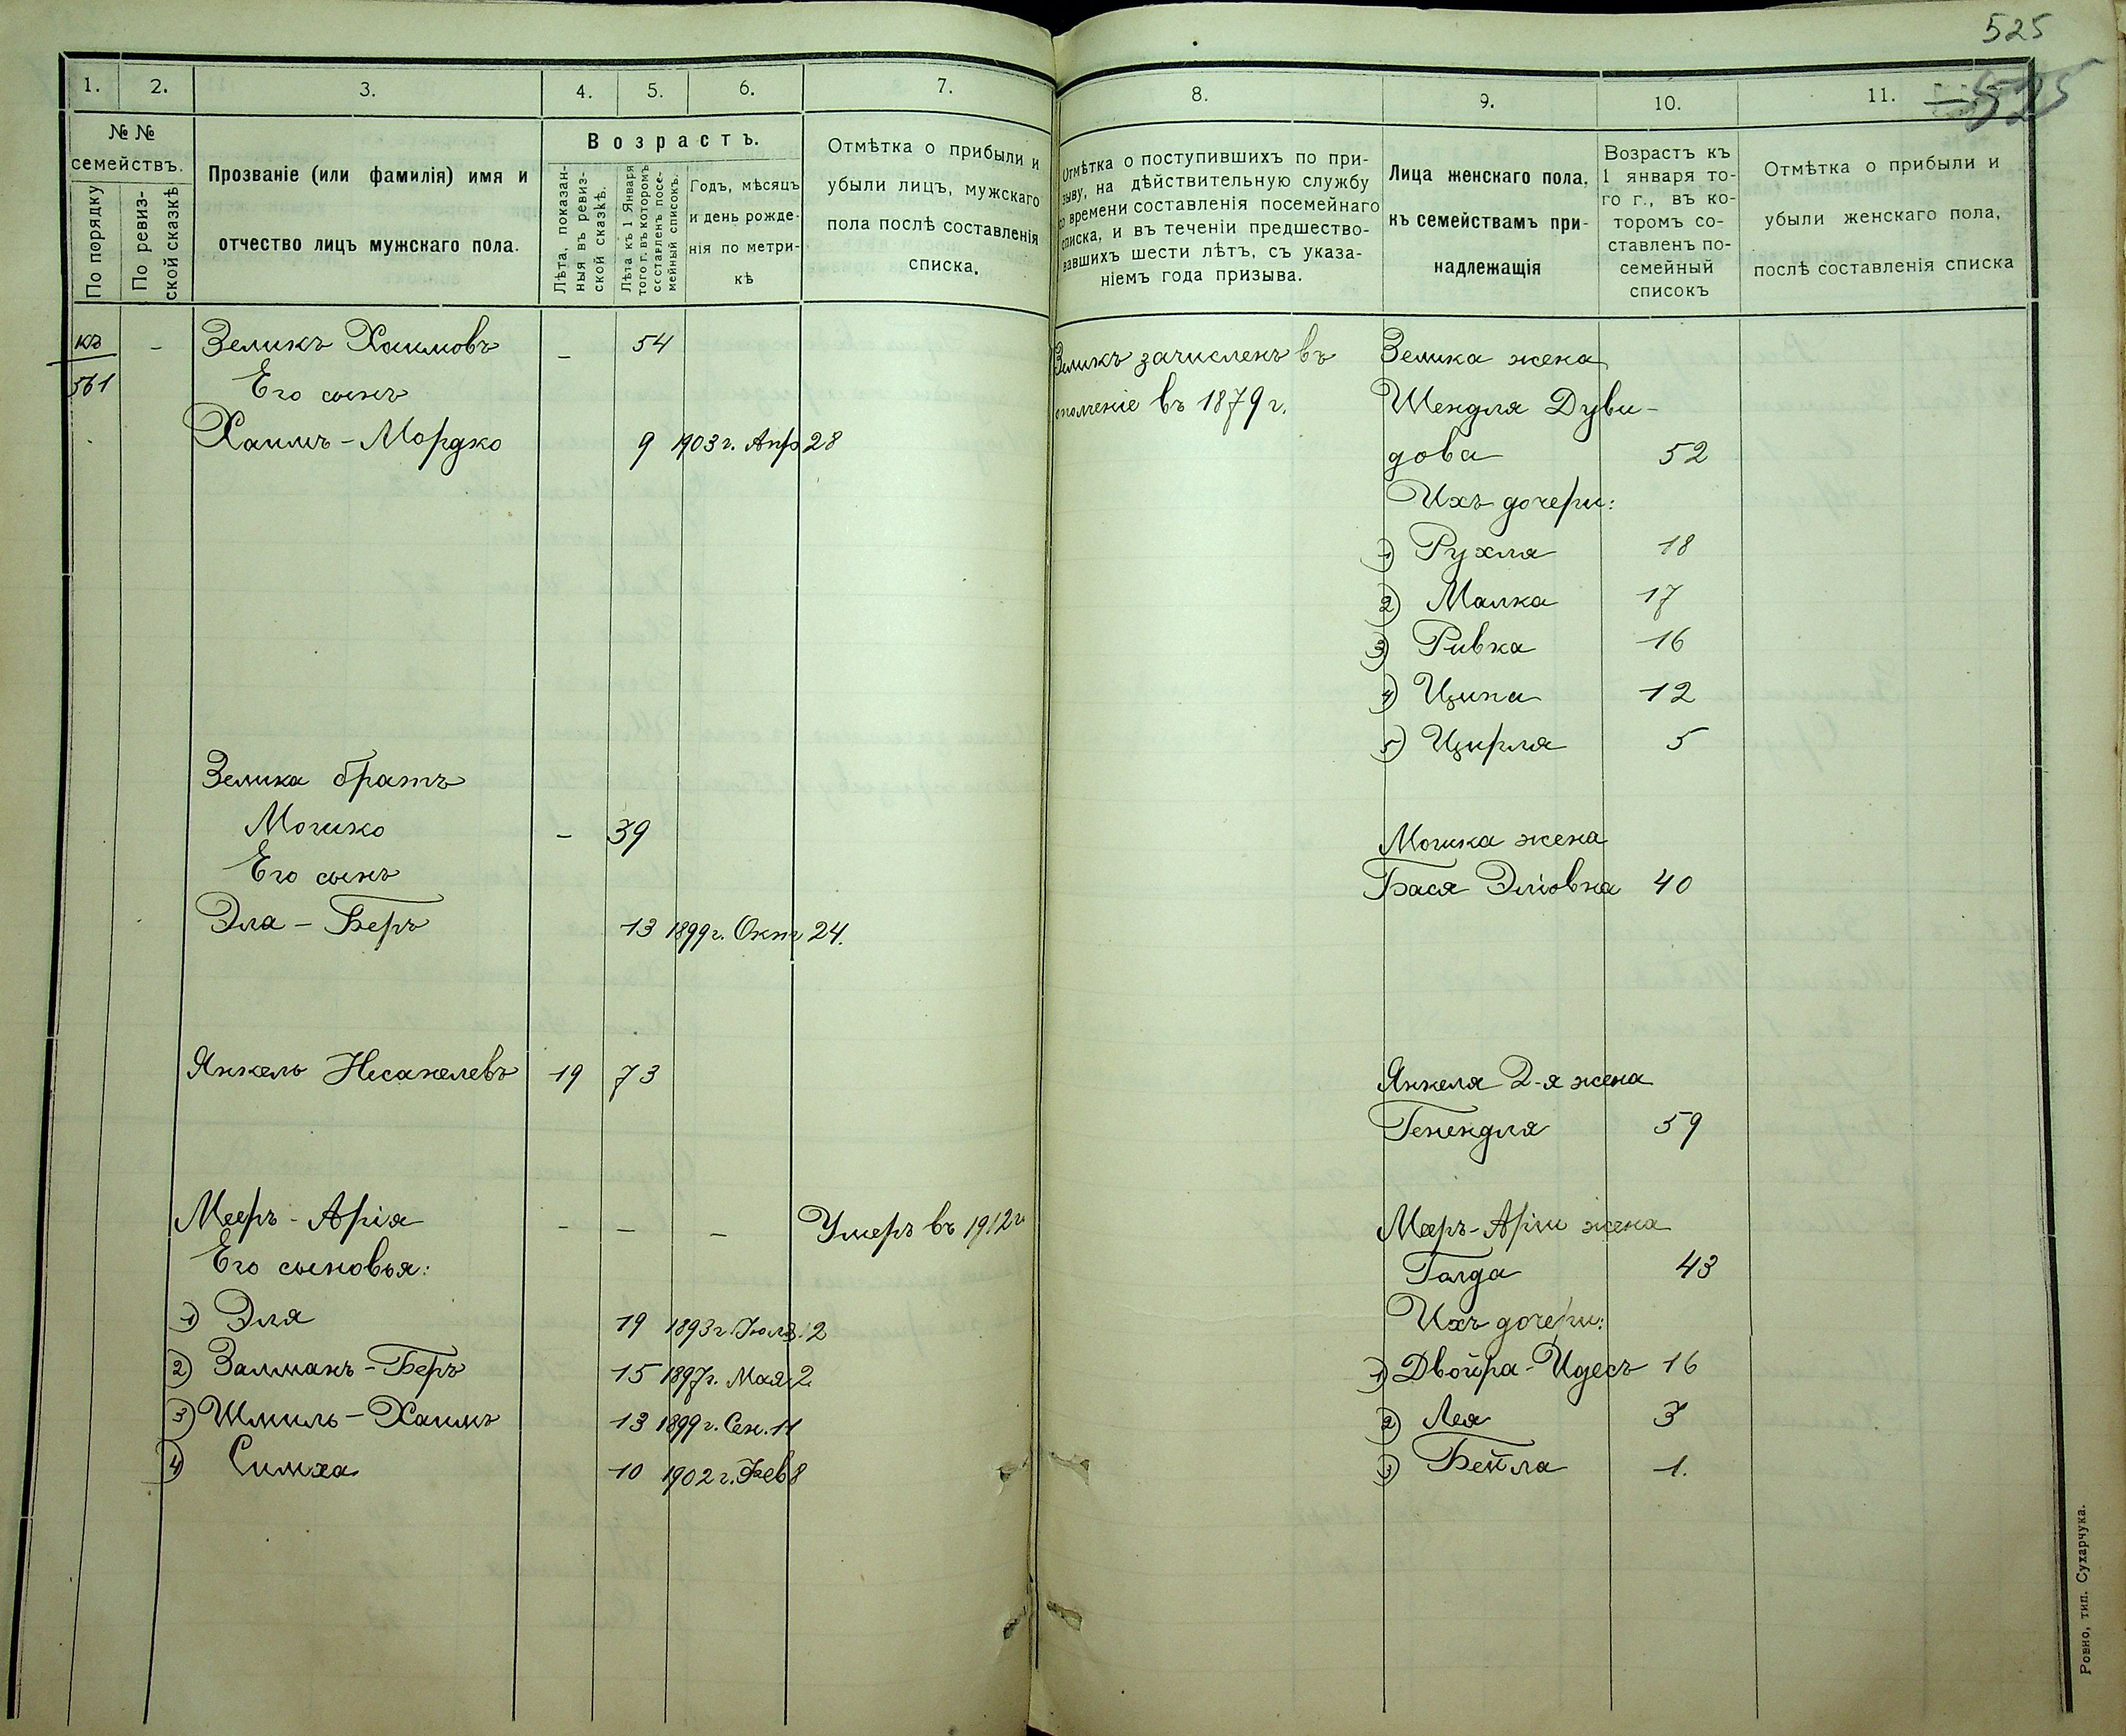 525
525
1.
2.
3.
4.
5.
6.
7.
№ №
семействъ.
По порядку
По ревиз-
ской сказкѣ
Прозваніе (или фамилія) имя и
отчество лицъ мужскаго пола.
Возрастъ.
Лѣта, показан-
ныя въ ревиз-
ской сказкѣ.
Лѣта къ 1 Января
того г. въ которомъ
составленъ посе-
мейный списокъ.
Годъ, мѣсяцъ
и день рожде-
нія по метри-
кѣ
Отмѣтка о прибыли и
убыли лицъ, мужскаго
пола послѣ составленія
списка.
къ – Зеликъ Хаимовъ – 54
561 Его сынъ
Хаимъ-Мордко 9 1903 г. Апр 28
Зелика братъ
Мошко – 39
Его сынъ
Эля-Беръ 13 1899 г. Окт 24.
Янкель Несанелевъ 19 73
Мееръ-Арія – – – Умеръ въ 1912 г.
Его сыновья:
1) Эля 19 1893 г. Іюля 2
2) Залманъ-Беръ 15 1897 г. Мая 2
3) Шмиль-Хаимъ 13 1899 г. Сен. 11
4) Симха 10 1902 г. Фев 8
8.
9.
10.
11.
Отмѣтка о поступившихъ по при-
зыву, на дѣйствительную службу
со времени составленія посемейнаго
списка, и въ теченіи предшество-
вавшихъ шести лѣтъ, съ указа-
ніемъ года призыва.
Лица женскаго пола,
къ семействамъ при-
надлежащія
Возрастъ къ
1 января то-
го г., въ ко-
торомъ со-
ставленъ по-
семейный
списокъ
Отмѣтка о прибыли и
убыли женскаго пола,
послѣ составленія списка
Зеликъ зачисленъ въ Зелика жена
ополченіе въ 1879 г. Шендля Дуви-
дова 52
Ихъ дочери:
1) Рухля 18
2) Малка 17
3) Ривка 16
4) Ципа 12
5) Цирля 5
Мошка жена
Бася Эліовна 40
Янкеля 2-я жена
Генендля 59
Мееръ-Аріи жена
Голда 43
Ихъ дочери:
1) Двойра-Идесъ 16
2) Лея 3
3) Бейла 1.
Ровно, тип. Сухарчука.